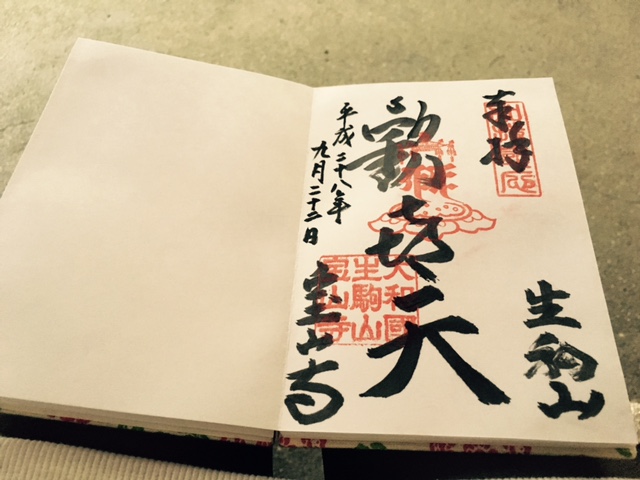 奉拝
生駒山
歓喜天
大和國
生駒山
宝山寺
平成二十八年
九月二十二日
宝山寺